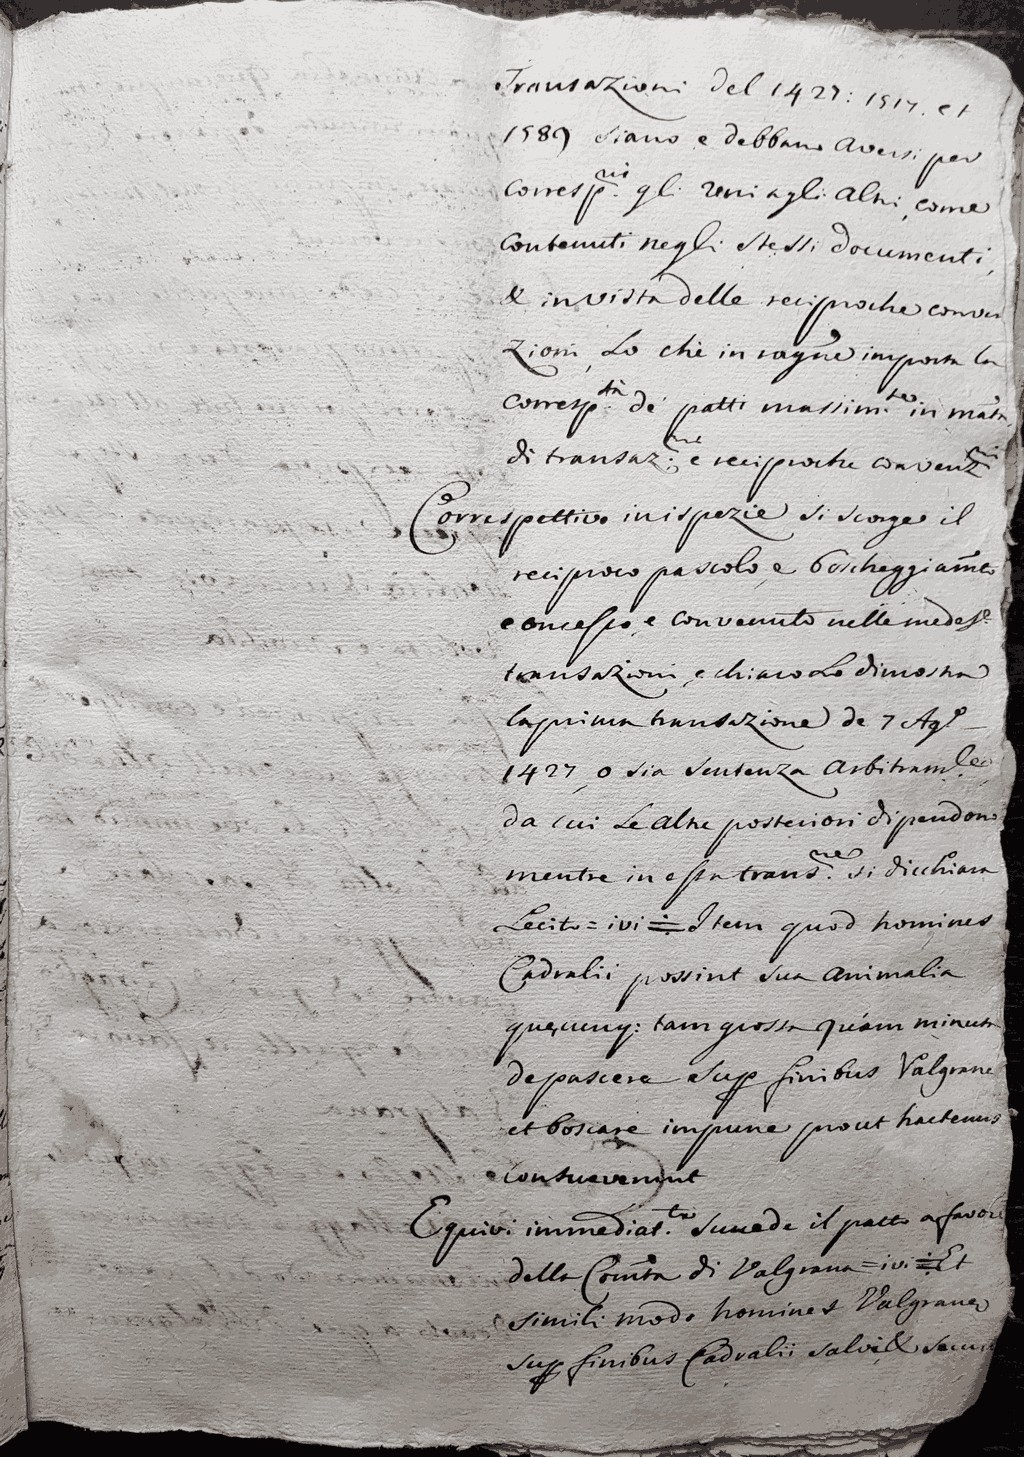 Transazioni del 1427: 1517. et
1589 siano, e debbano aversi per
corresp.ui gli uni agli altri, come
contenuti negli stessi documenti,
& in vista delle reciproche conven
zioni, Lo che in ragne importa la
corresp.tà de' patti massim.te in mata
di transaz.ni e reciproche convenz.ni
Correspettivo in ispezie si scorge il
reciproco pascolo, e boscheggiamto
concesso, e convenuto nelle medes.e
transazioni, e chiaro Lo dimostra
la prima transazione de 7 Ag.o
1427, o sia sentenza arbitram.le
da cui Le altre posteriori dipendono
mentre in essa trans.ne si dicchiara
Lecito = ivi = Item quod homines
Cadralii possint sua animalia
quęcunq: tam grossa quam minuta
depascere sup finibus Valgranę
et boscare impune prout hactenus
consueverunt
E quivi immediat.te succede il patto a favore
della Comta di Valgrana = ivi = Et
simili modo homines Valgranę
sup finibus Cadralii salvi, & securi